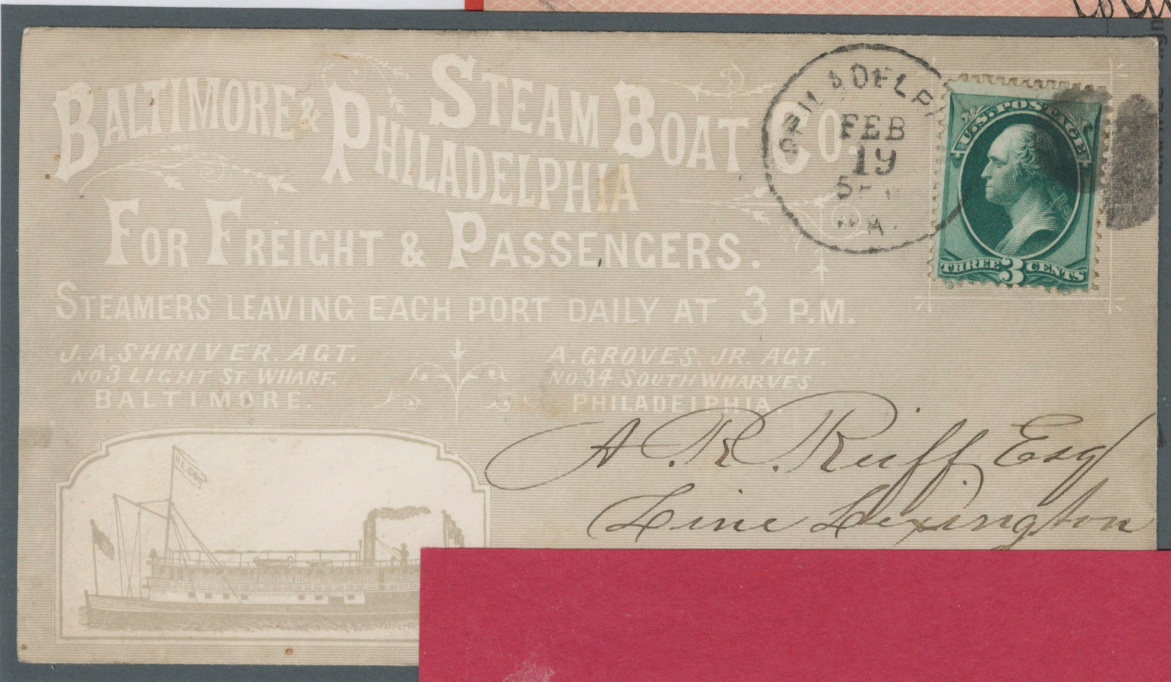 BALTIMORE & PHILADELPHIA STEAM BOAT CO.
FOR FREIGHT & PASSENGERS.
STEAMERS LEAVING EACH PORT DAILY AT 3 P.M.
J.A. SHRIVER. AGT.
NO 3 LIGHT ST. WHARF.
BALTIMORE.
A. GROVES, JR. AGT.
NO. 34 SOUTH WHARVES
PHILADELPHIA
PHILADELP
FEB
19
U.S. POSTAGE
THREE 3 CENTS
A. R. Reiff Esq
Line Lexington